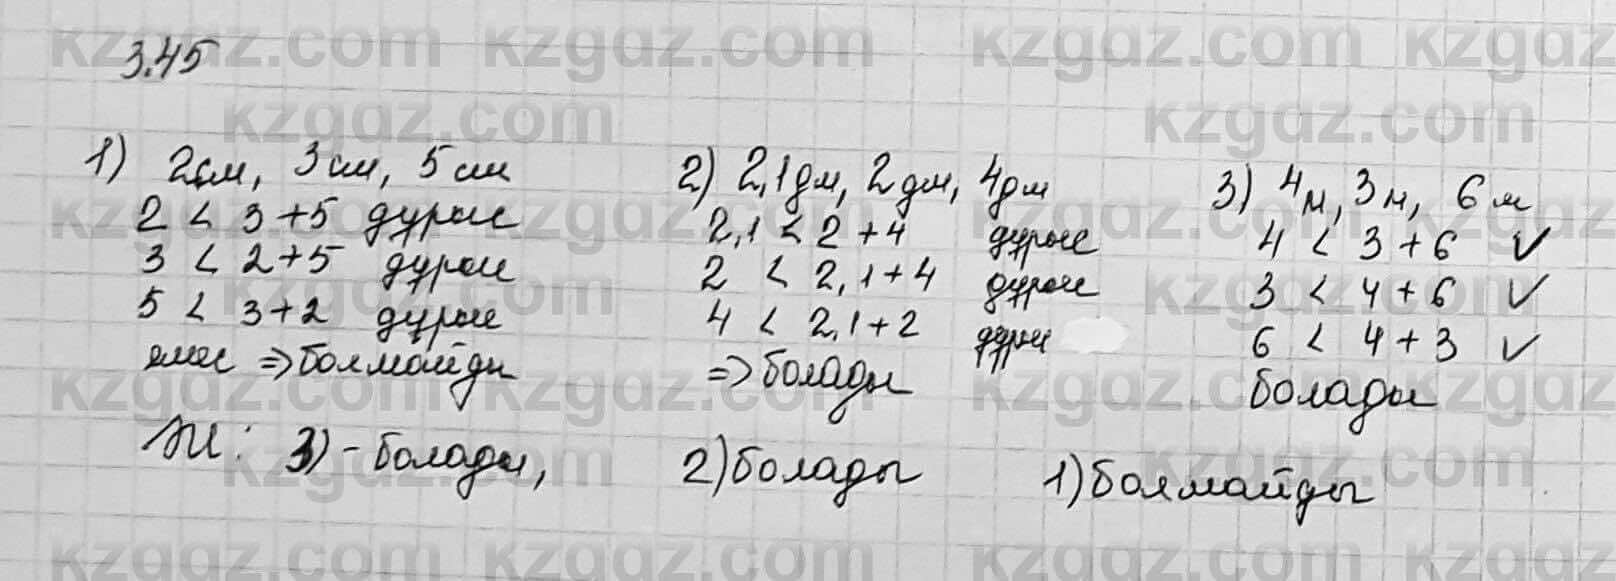 3.45
1) 2см, 3см, 5см
2 < 3+5 дұрыс
3 < 2+5 дұрыс
5 < 3+2 дұрыс
емес => болмайды
2) 2,1дм, 2дм, 4дм
2,1 < 2+4 дұрыс
2 < 2,1+4 дұрыс
4 < 2,1+2 дұрыс
=> болады
3) 4м, 3м, 6м
4 < 3+6 ✓
3 < 4+6 ✓
6 < 4+3 ✓
болады
Ж: 3) - болады, 2) болады 1) болмайды
kzgdz.com